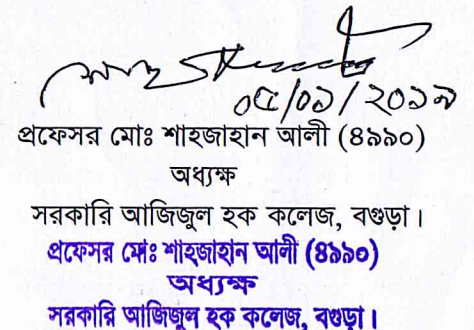 ০৫/০১/২০১৯
প্রফেসর মোঃ শাহজাহান আলী (৪৯৯০)
অধ্যক্ষ
সরকারি আজিজুল হক কলেজ, বগুড়া।
প্রফেসর মোঃ শাহজাহান আলী (৪৯৯০)
অধ্যক্ষ
সরকারি আজিজুল হক কলেজ, বগুড়া।